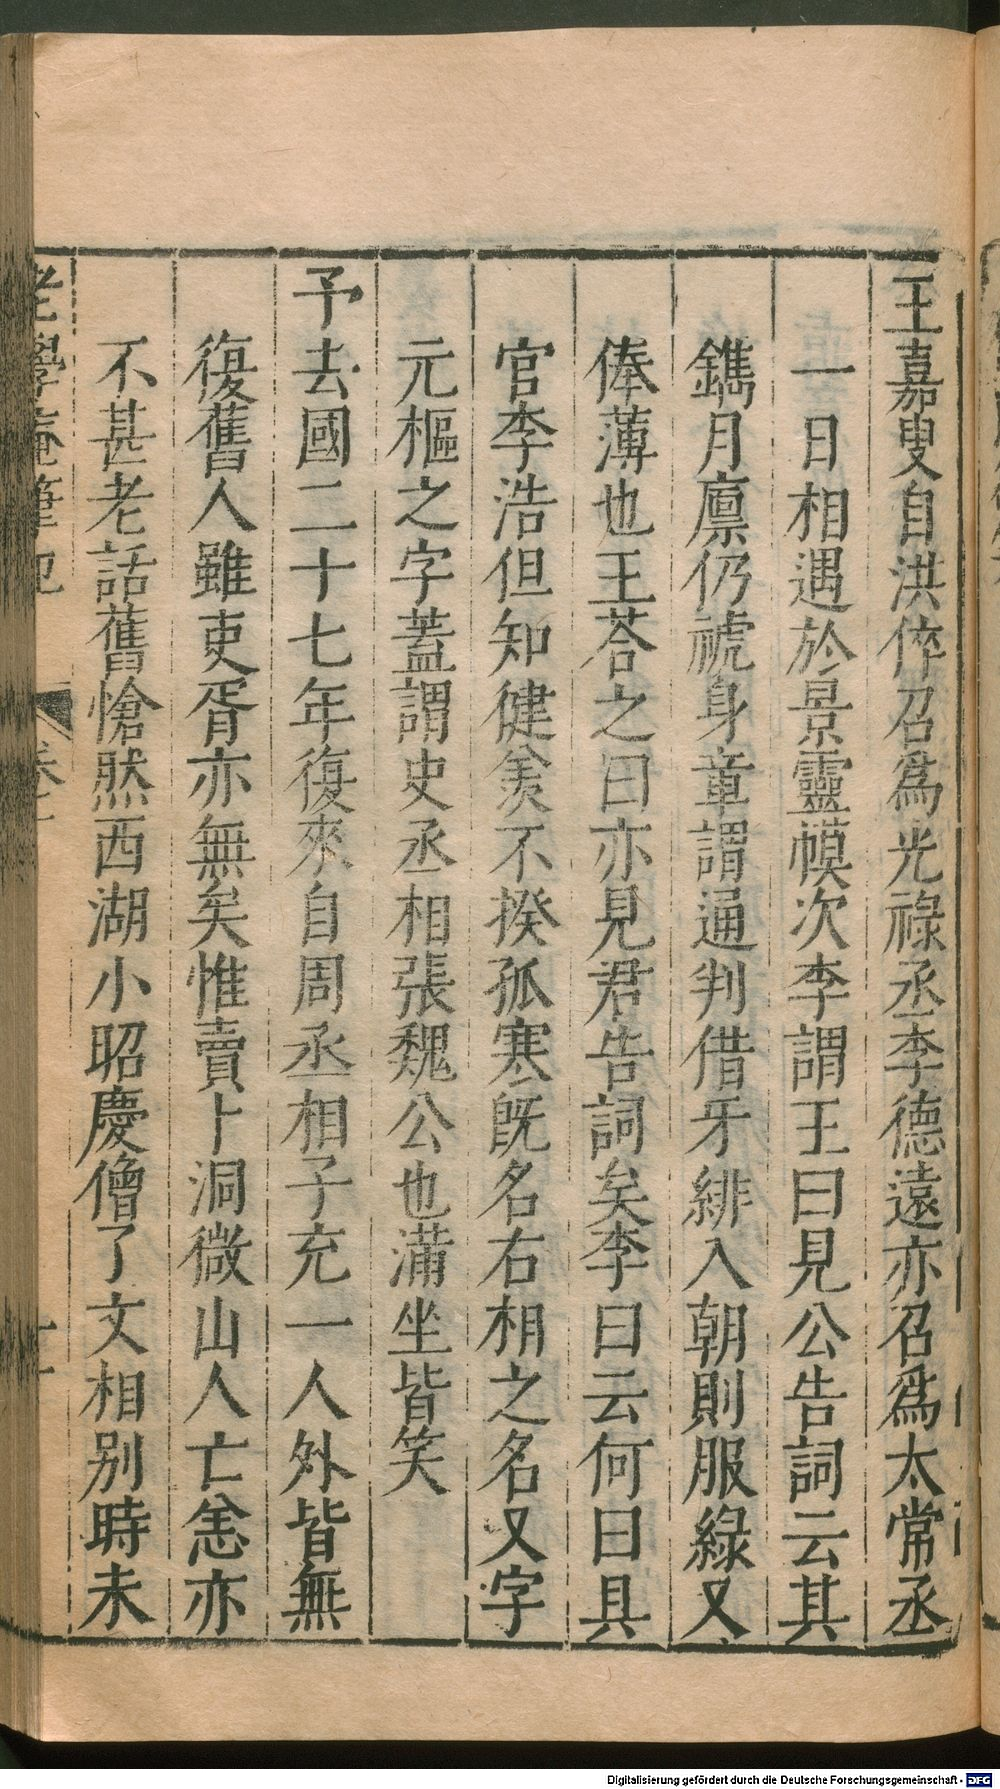 王嘉叟自洪倅召爲光祿丞李德遠亦召爲太常丞
一日相遇於景靈幙次李謂王曰見公告詞云其
鐫月廪仍褫身章謂通判借牙緋入朝則服綠又
俸薄也王荅之曰亦見君告詞矣李曰云何曰具
官李浩但知健羨不揆孤寒旣名右相之名又字
元樞之字葢謂史丞相張魏公也滿坐皆笑
予去國二十七年復來自周丞相子充一人外皆無
復舊人雖吏胥亦無矣惟賣卜洞微山人亡恙亦
不甚老話舊愴然西湖小昭慶僧了文相別時未
老學庵筆記 卷 十一
Digitalisierung gefördert durch die Deutsche Forschungsgemeinschaft - DFG